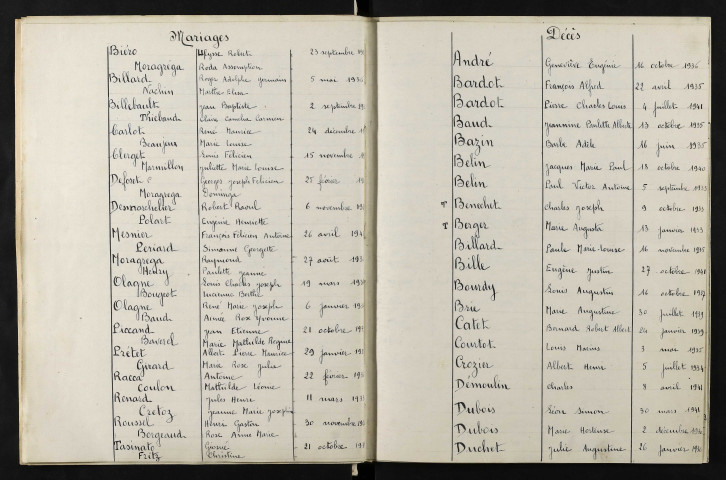 Mariages
Biéro Ulysse Robert 23 septembre
Moragrega Roda Assomption
Billard Roger Adolphe germain 5 mai 193
Nachin Marthe Elisa
Billebault Jean Baptiste 2 septembre
Thiebaud Claire Camelia Carmen
Carlot René Maurice 24 décembre
Beaujeu Marie Louise
Clerget Louis Félicien 15 novembre
Marmillon Juliette Marie Louise
Deforet Georges Joseph Félicien 25 février
Moragrega Dominga
Desmoschelier Robert Raoul 6 novembre
Polart Eugénie Henriette
Mesnier François Félicien Antoine 26 avril 194
Periard Simonne Georgette
Moragrega Raymond 27 août 193
Henry Paulette Jeanne
Olagne Louis Charles Joseph 19 mars 193
Bougeot Lucienne Berthe
Olagne René Marie Joseph 6 janvier
Baud Aimée Rose Yvonne
Piccand Jean Etienne 21 octobre
Baverel Marie Mathilde Regine
Prétet Albert Pierre Maurice 29 janvier
Girard Marie Rose Julie
Racca Antoine 22 février
Coulon Mathilde Léonie
Renard Jules Henri 11 mars 193
Cretoz Jeanne Marie Joseph
Roussel Henri Gaston 30 novembre
Borgeaud Rose Anne Marie
Tasinato Giosué 21 octobre
Fritz Christine
Décès
André Geneviève Eugénie 16 octobre 1936
Bardot François Alfred 22 avril 1935
Bardot Pierre Charles Louis 4 juillet 1941
Baud Jeannine Paulette Alberte 13 octobre 1935
Bazin Barbe Adèle 16 juin 1935
Belin Jacques Marie Paul 18 octobre 1940
Belin Paul Victor Antoine 5 septembre 1933
T Benechet Charles Joseph 9 octobre 1933
T Berger Marie Augusta 13 janvier 1933
Billard Paule Marie-Louise 16 novembre 1935
Bille Eugène Justin 27 octobre 1941
Bourdy Louis Augustin 16 octobre 1937
Brie Marie Augustine 30 juillet 1939
Catet Bernard Robert Albert 24 janvier 1939
Courtot Louis Marius 3 mai 1935
Crozier Albert Henri 5 juillet 1934
Demoulin Charles 8 avril 1941
Dubois Léon Simon 30 mars 1941
Dubois Marie Hortense 2 décembre
Duchet Julie Augustine 26 janvier